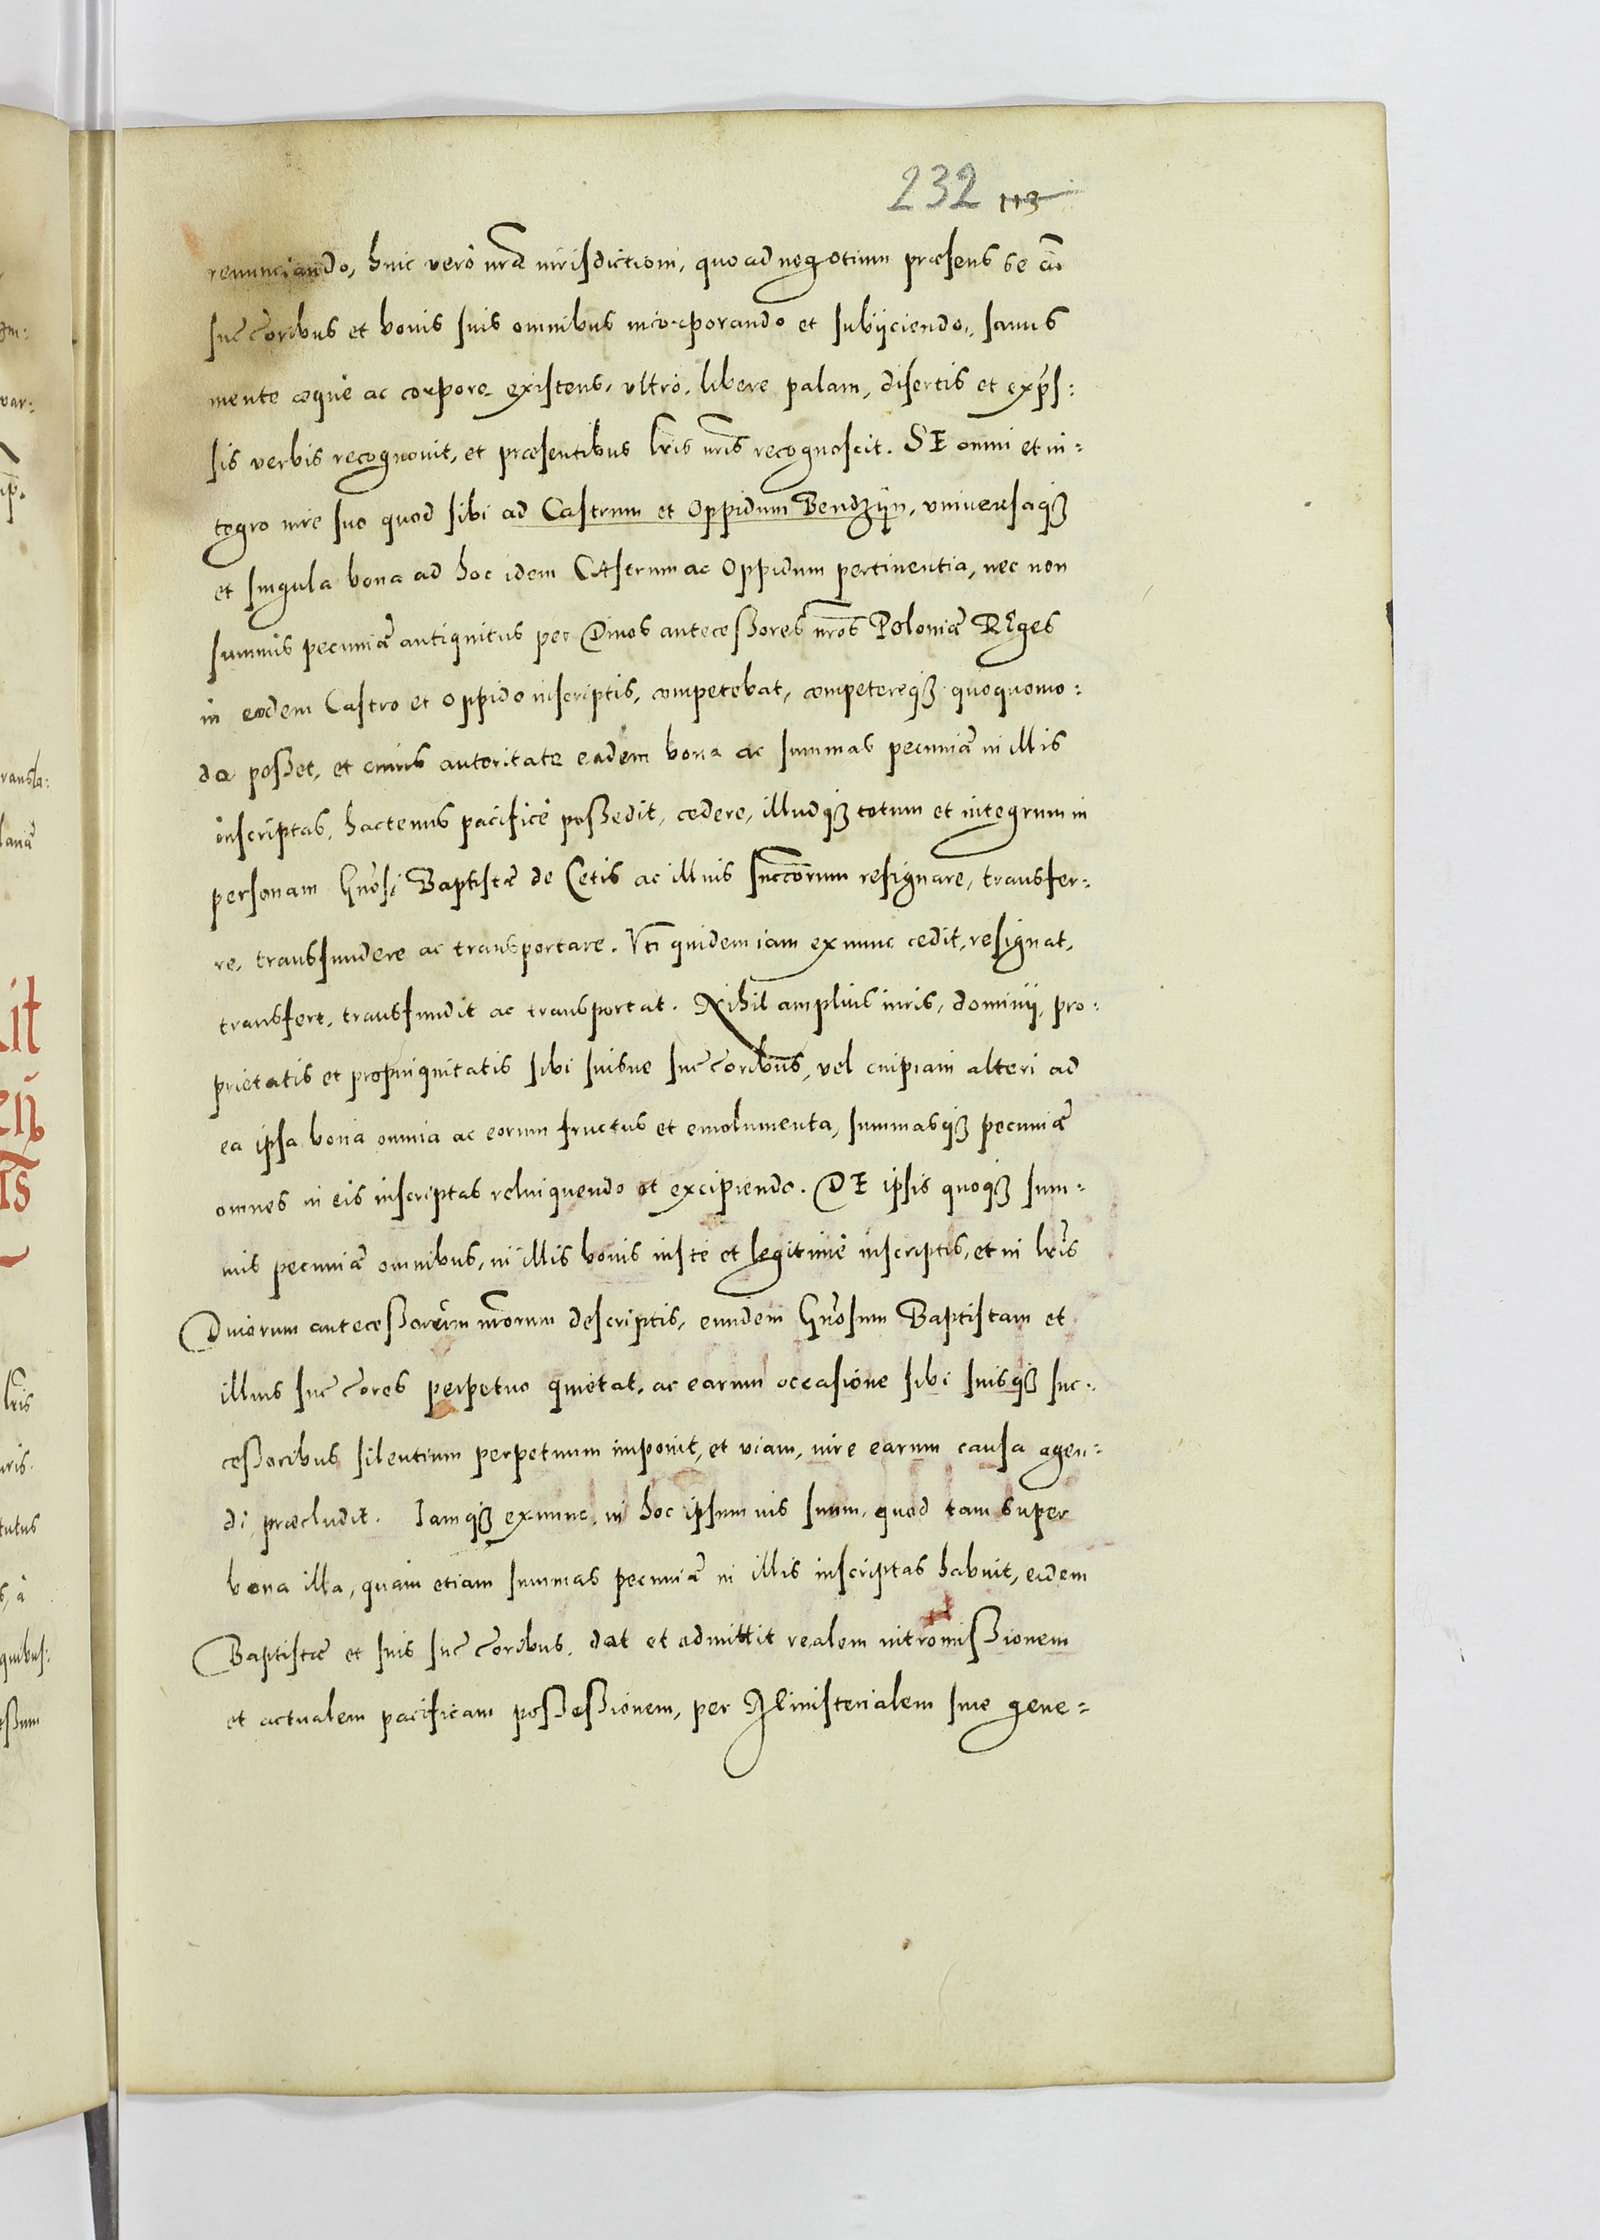 232 113
renunciando, huic verò nrǣ iurisdictioni, quoad negotium præsens se cū
succ̃oribus et bonis suis omnibus incorporando et subijciendo, sanus
mente æquè ac corpore existens, vltrò, libere palam, disertis et exp̃s:
sis verbis recognouit, et præsentibus lr̃is nr̃is recognoscit. SE omni et in:
tegro iure suo quod sibi ad Castrum et Oppidum Bendzijn, vniuersaqȝ
et singula bona ad hoc idem CAstrum ac Oppidum pertinentia, nec non
summis pecuniæ antiquitus per Diuos antecessores nr̃os Poloniæ REges
in eodem Castro et Oppido inscriptis, competebat, competereqȝ quoquomo:
do posset, et cuius autoritate eadem bona ac summas pecuniæ in illis
inscriptas, hactenus pacificè possedit, cedere, illudqȝ totum et integrum in
personam Gñosi Baptistæ de Cetis ac illius succ̃orum resignare, transfer:
re, transfundere ac transportare. Vti quidem iam ex nunc cedit, resignat,
transfert, transfundit ac transportat. Nihil amplius iuris, dominij, pro:
prietatis et propinquitatis sibi suisue succ̃oribus, vel cuipiam alteri ad
ea ipsa bona omnia ac eorum fructus et emolumenta, summasqȝ pecuniæ
omnes in eis inscriptas relinquendo et excipiendo. DE ipsis quoqȝ sum:
mis pecuniæ omnibus, in illis bonis iustè et legitimè inscriptis, et in lr̃is
Diuorum antecessorum nr̃orum descriptis, eundem Gñosum Baptistam et
illius succ̃ores perpetuo quietat, ac earum occasione sibi suisqȝ suc:
cessoribus silentium perpetuum imponit, et viam, iure earum causa agen:
di, præcludit. Iamqȝ ex nunc, in hoc ipsum ius suum, quod tam super
bona illa, quam etiam summas pecuniæ in illis inscriptas habuit, eidem
Baptistæ et suis succ̃oribus, dat et admittit realem intromissionem
et actualem pacificam possessionem, per Ministerialem siue gene: